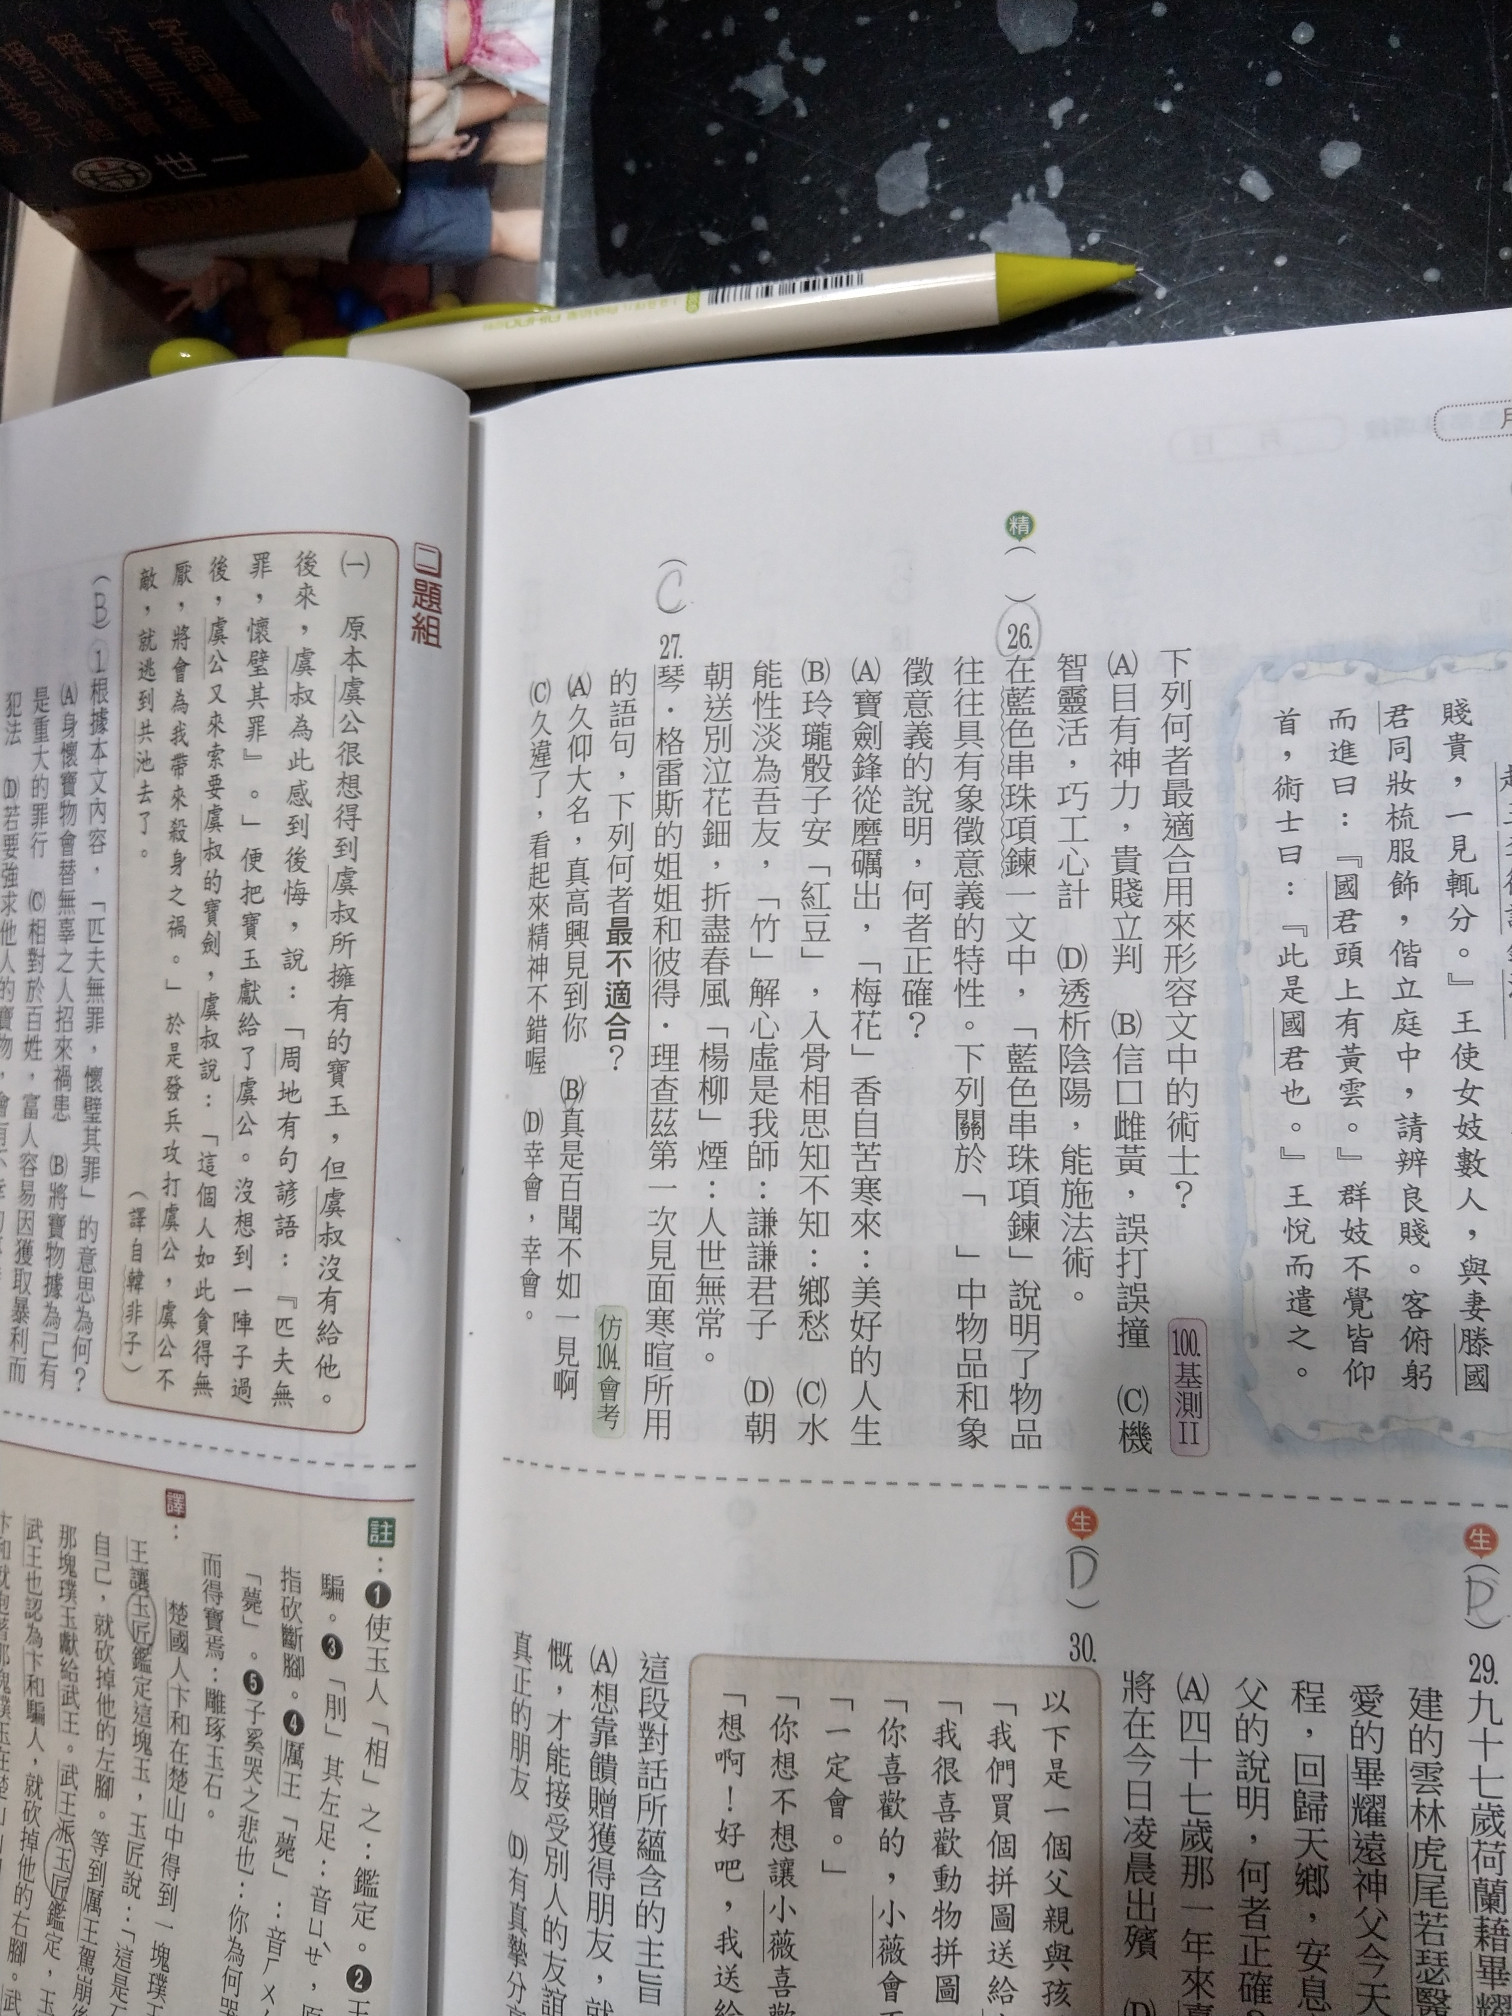 賤貴，一見輒分。』王使女妓數人，與妻滕國
君同妝梳服飾，偕立庭中，請辨良賤。客俯躬
而進曰：『國君頭上有黃雲。』群妓不覺皆仰
首，術士曰：『此是國君也。』王悅而遣之。
下列何者最適合用來形容文中的術士？
100.基測II
(A)目有神力，貴賤立判　(B)信口雌黃，誤打誤撞　(C)機
智靈活，巧工心計　(D)透析陰陽，能施法術。
精（　）26.在藍色串珠項鍊一文中，「藍色串珠項鍊」說明了物品
往往具有象徵意義的特性。下列關於「　」中物品和象
徵意義的說明，何者正確？
(A)寶劍鋒從磨礪出，「梅花」香自苦寒來：美好的人生
(B)玲瓏骰子安「紅豆」，入骨相思知不知：鄉愁　(C)水
能性淡為吾友，「竹」解心虛是我師：謙謙君子　(D)朝
朝送別泣花鈿，折盡春風「楊柳」煙：人世無常。
（C）27.琴．格雷斯的姐姐和彼得．理查茲第一次見面寒暄所用
的語句，下列何者最不適合？
仿104.會考
(A)久仰大名，真高興見到你　(B)真是百聞不如一見啊
(C)久違了，看起來精神不錯喔　(D)幸會，幸會。
生
29.九十七歲荷蘭籍畢耀
建的雲林虎尾若瑟醫
愛的畢耀遠神父今天
程，回歸天鄉，安息
父的說明，何者正確？
(A)四十七歲那一年來臺
將在今日凌晨出殯　(D)
生（D）30.
以下是一個父親與孩
「我們買個拼圖送給
「我很喜歡動物拼圖
「你喜歡的，小薇會
「一定會。」
「你想不想讓小薇喜歡
「想啊！好吧，我送給
這段對話所蘊含的主旨
(A)想靠饋贈獲得朋友，就
慨，才能接受別人的友誼
真正的朋友　(D)有真摯分享
二題組
㈠　原本虞公很想得到虞叔所擁有的寶玉，但虞叔沒有給他。
後來，虞叔為此感到後悔，說：「周地有句諺語：『匹夫無
罪，懷璧其罪』。」便把寶玉獻給了虞公。沒想到一陣子過
後，虞公又來索要虞叔的寶劍，虞叔說：「這個人如此貪得無
厭，將會為我帶來殺身之禍。」於是發兵攻打虞公，虞公不
敵，就逃到共池去了。
（譯自韓非子）
（B）1.根據本文內容，「匹夫無罪，懷璧其罪」的意思為何？
(A)身懷寶物會替無辜之人招來禍患　(B)將寶物據為己有
是重大的罪行　(C)相對於百姓，富人容易因獲取暴利而
犯法　(D)若要強求他人的寶物，會
註：❶使玉人「相」之：鑑定。❷王
騙。❸「刖」其左足：音ㄩㄝˋ，
指砍斷腳。❹厲王「薨」：音ㄏㄨ
「薨」。❺子奚哭之悲也：你為何哭
而得寶焉：雕琢玉石。
譯：
楚國人卞和在楚山中得到一塊璞玉
王讓玉匠鑑定這塊玉，玉匠說：「這是石
自己，就砍掉他的左腳。等到厲王駕崩後
那塊璞玉獻給武王。武王派玉匠鑑定，玉
武王也認為卞和騙人，就砍掉他的右腳。武